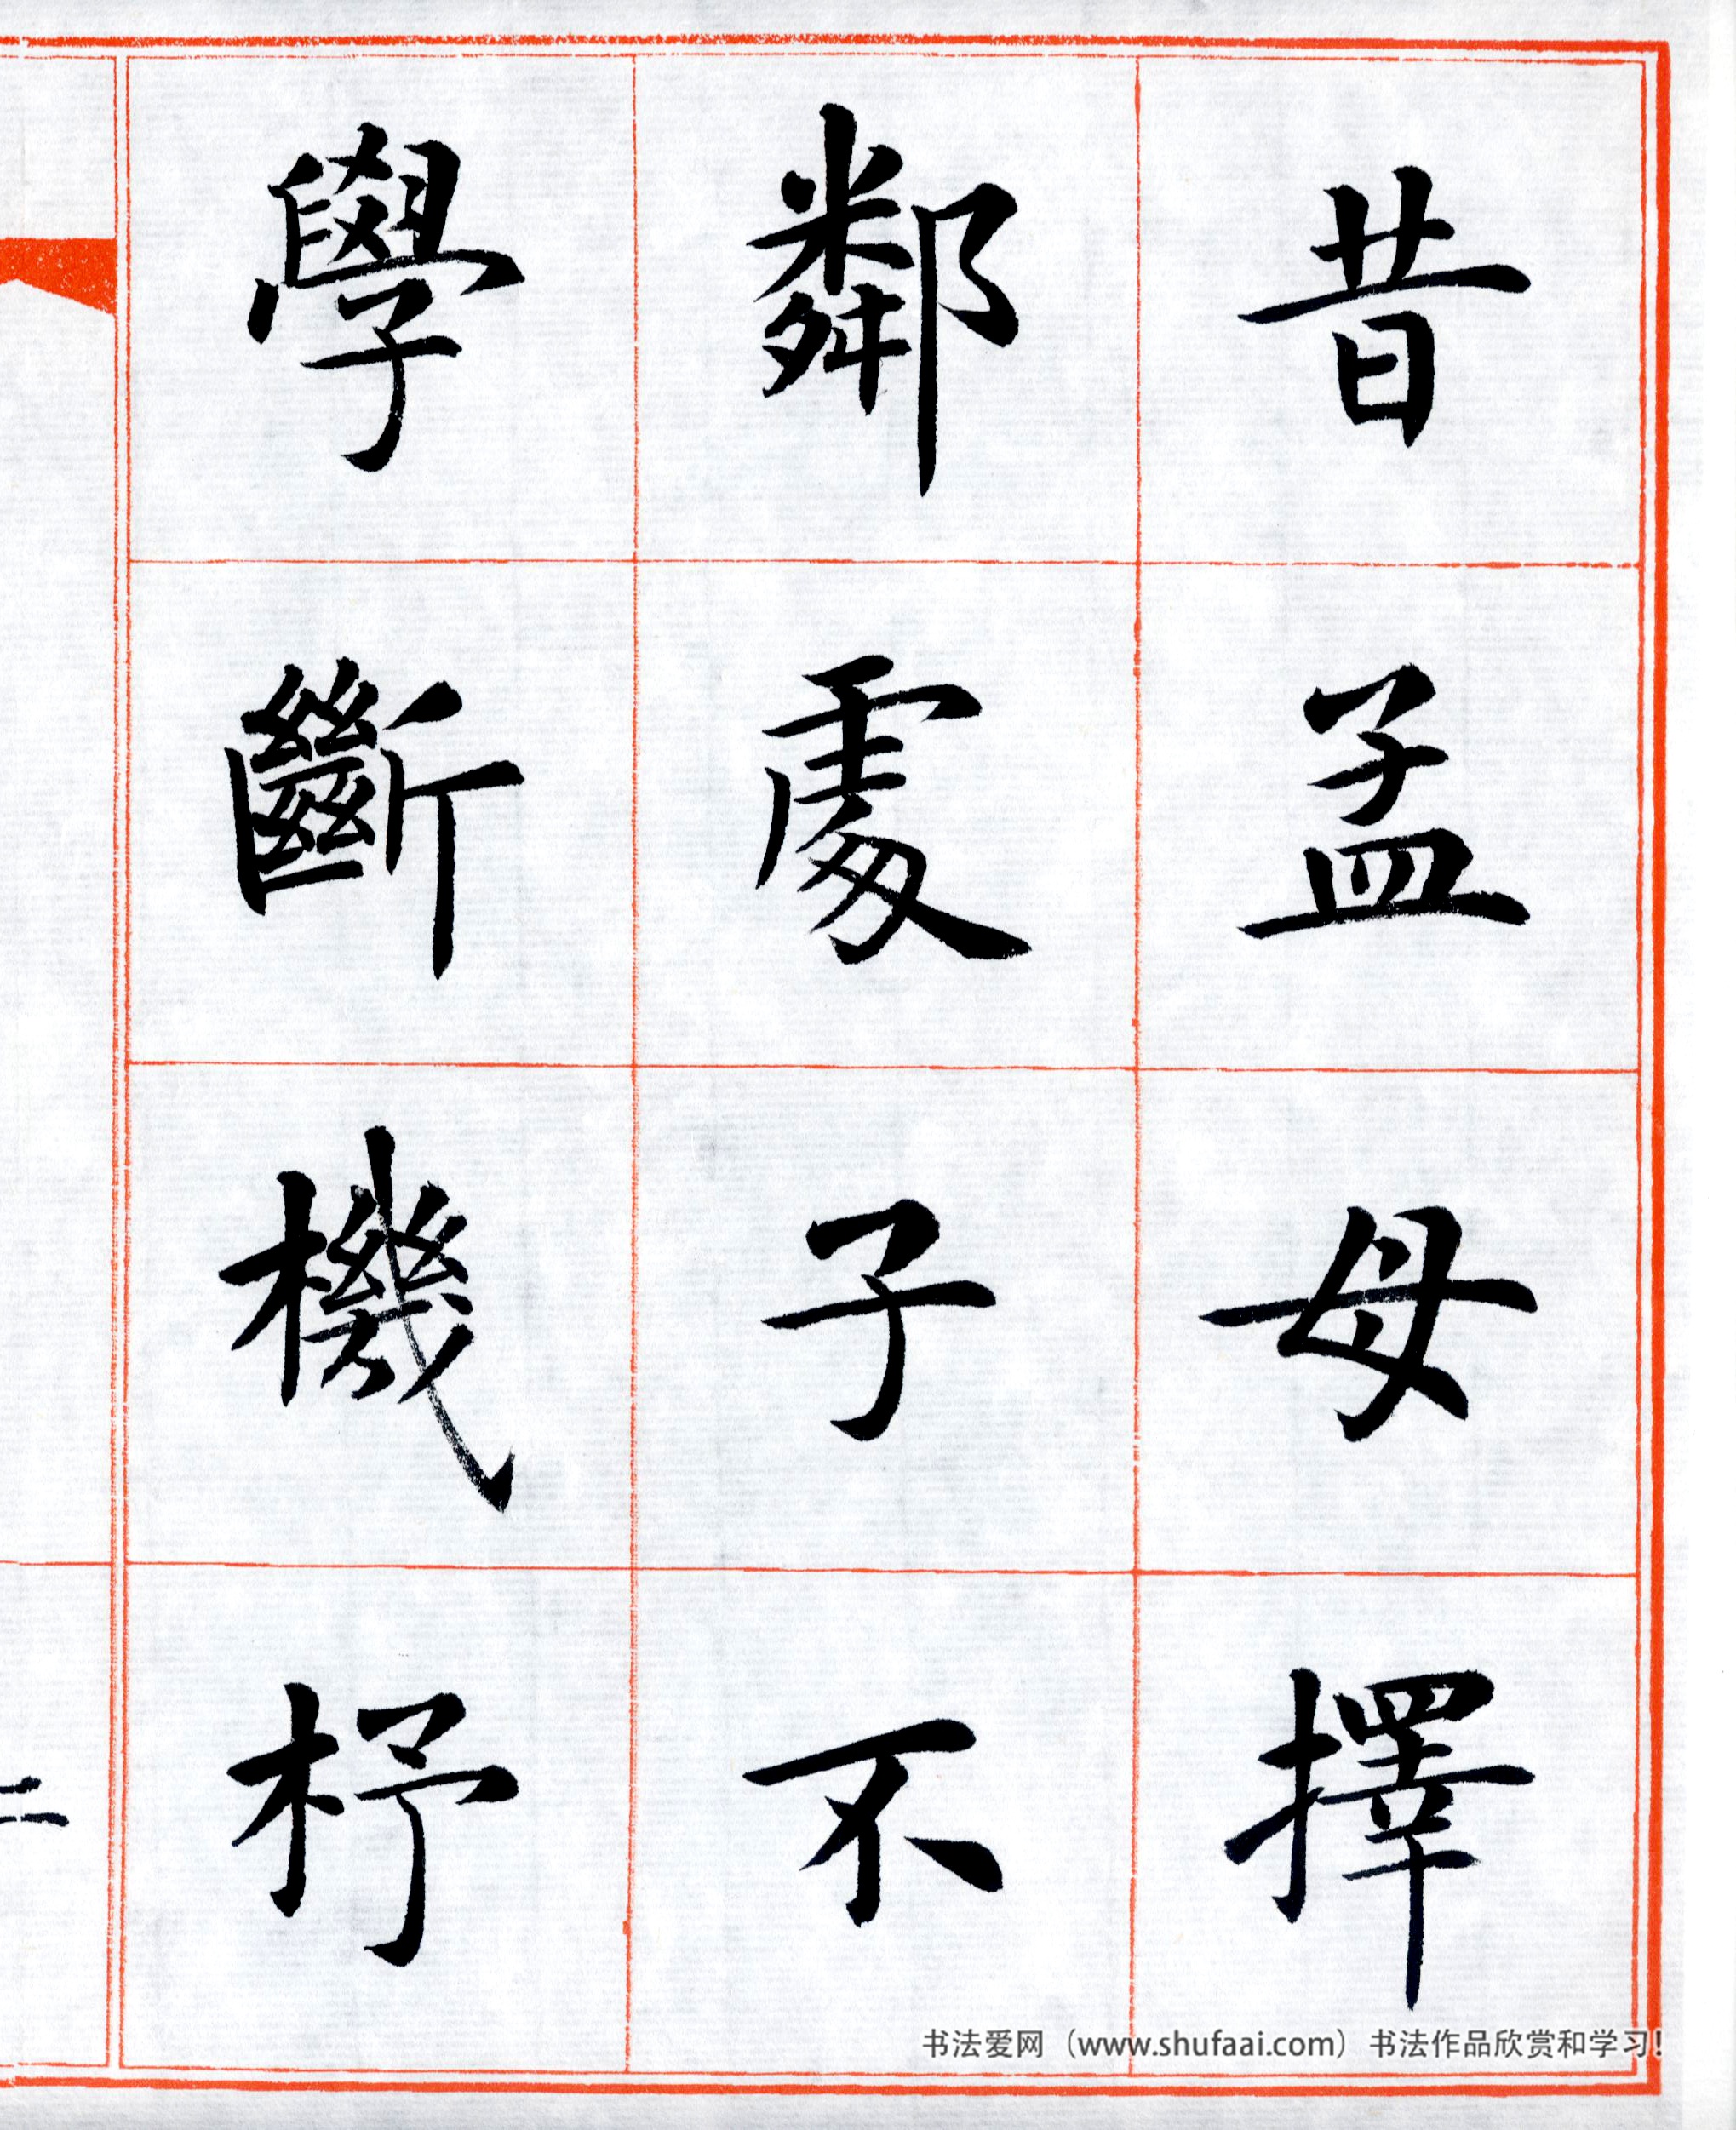 昔孟母擇
鄰處子不
學斷機杼
二
书法爱网（www.shufaai.com）书法作品欣赏和学习！